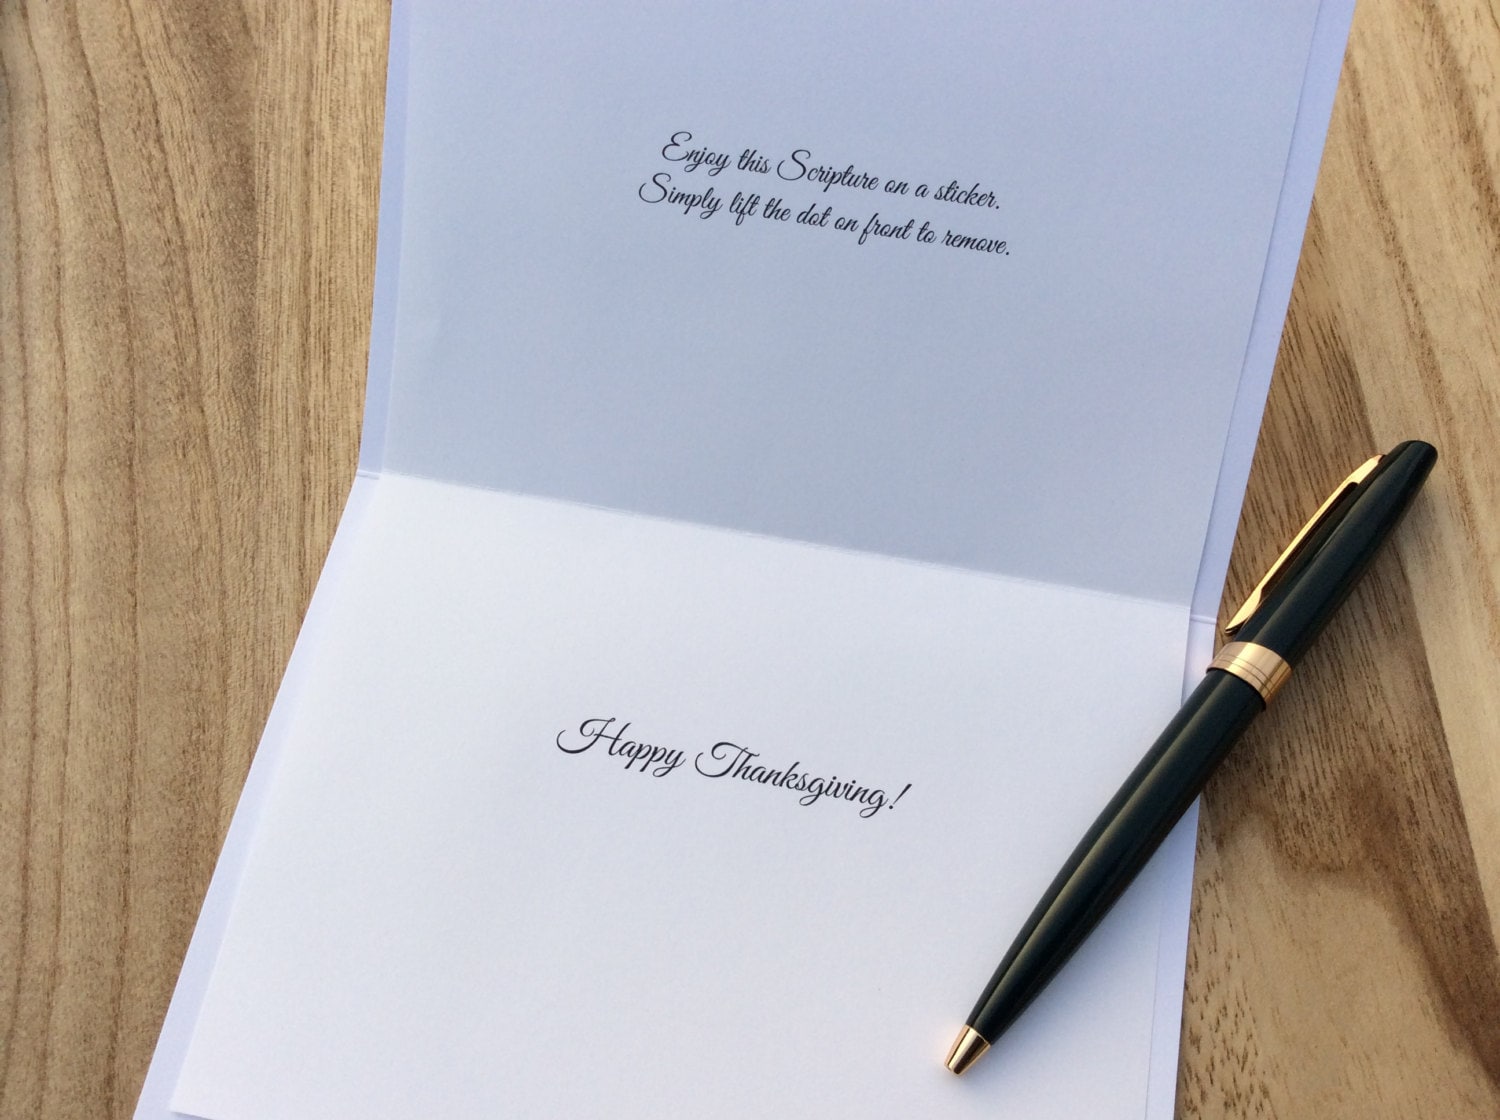 Enjoy this Scripture on a sticker.
Simply lift the dot on front to remove.
Happy Thanksgiving!